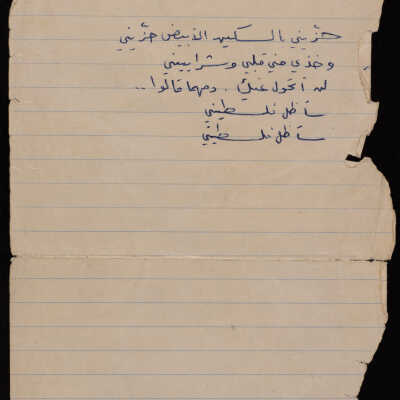 حزّيني بالسكين الأبيض حزّيني
وخذي مني قلبي وشراييني
لن أتحول عنكِ. ومهما قالوا..
سأظل فلسطيني
سأظل فلسطيني